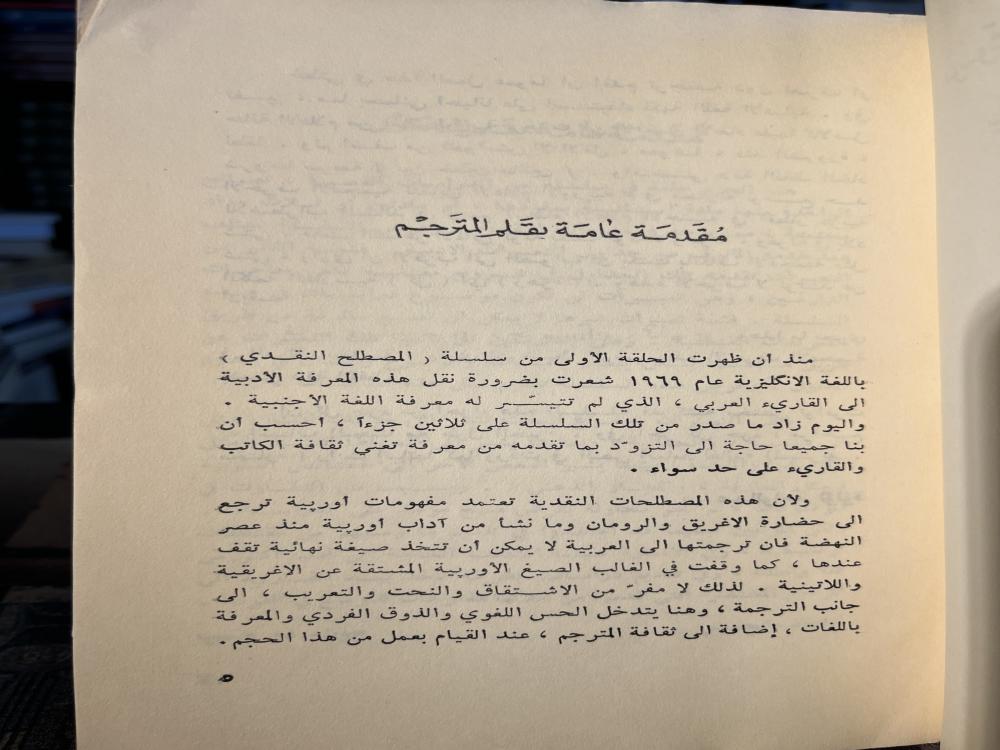 مُقَدمَة عَامَة بقَلم المتَرجِمْ
منذ أن ظهرت الحلقة الأولى من سلسلة ( المصطلح النقدي )
باللغة الانكليزية عام ١٩٦٩ شعرت بضرورة نقل هذه المعرفة الأدبية
الى القاريء العربي ، الذي لم تتيسّر له معرفة اللغة الأجنبية .
واليوم زاد ما صدر من تلك السلسلة على ثلاثين جزءاً ، أحسب أن
بنا جميعا حاجة الى التزوّد بما تقدمه من معرفة تغني ثقافة الكاتب
والقاريء على حد سواء .
ولأن هذه المصطلحات النقدية تعتمد مفهومات أوربية ترجع
الى حضارة الاغريق والرومان وما نشأ من آداب أوربية منذ عصر
النهضة فان ترجمتها الى العربية لا يمكن أن تتخذ صيغة نهائية تقف
عندها ، كما وقفت في الغالب الصيغ الأوربية المشتقة عن الاغريقية
واللاتينية . لذلك لا مفرّ من الاشتقاق والنحت والتعريب ، الى
جانب الترجمة ، وهنا يتدخل الحس اللغوي والذوق الفردي والمعرفة
باللغات ، إضافة الى ثقافة المترجم ، عند القيام بعمل من هذا الحجم .
٥